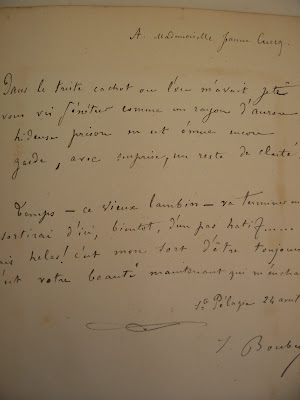 A Mademoiselle Jeanne
Dans le triste cachot où l'on m'avait jeté
vous vis pénétrer comme un rayon d'aurore
hideuse prison en est émue encore
garde, avec surprise, un reste de clarté
Temps – ce vieux lambin – va terminer
sortirai d'ici, bientôt, d'un pas hatif
ais helas! c'est mon sort d'être toujours
c'est votre beauté maintenant qui m'encha
Ste Pélagie 24 avril